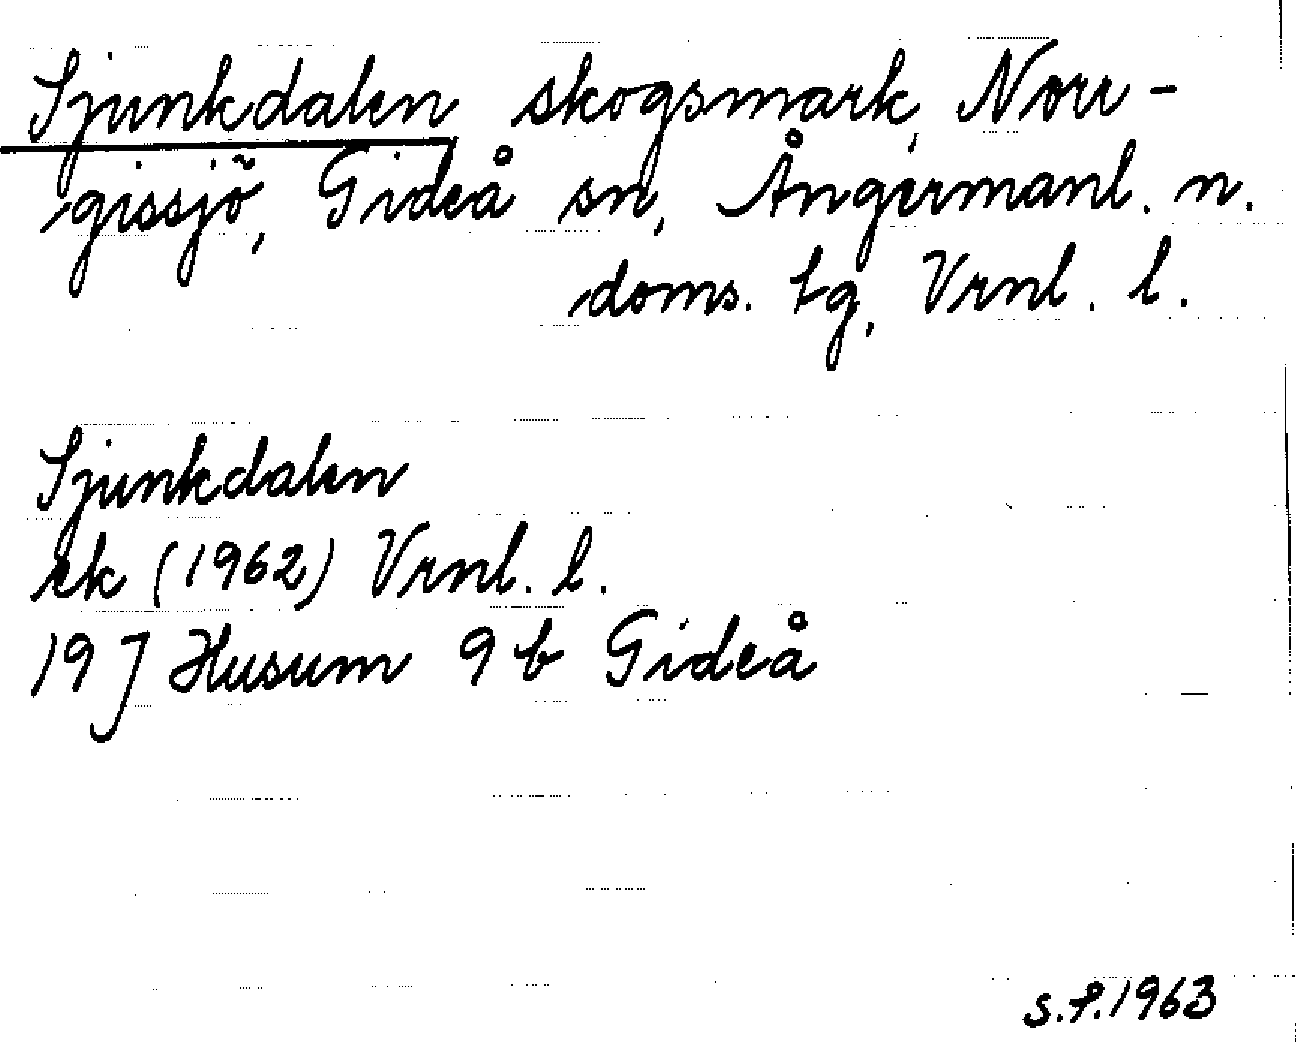 Sjunkdalen skogsmark, Norr-
gissjö, Gideå sn, Ångermanl. n.
doms. tg, Vrnl. l.
Sjunkdalen
ek (1962) Vrnl. l.
19 J Husum 9 b Gideå
S.P.1963